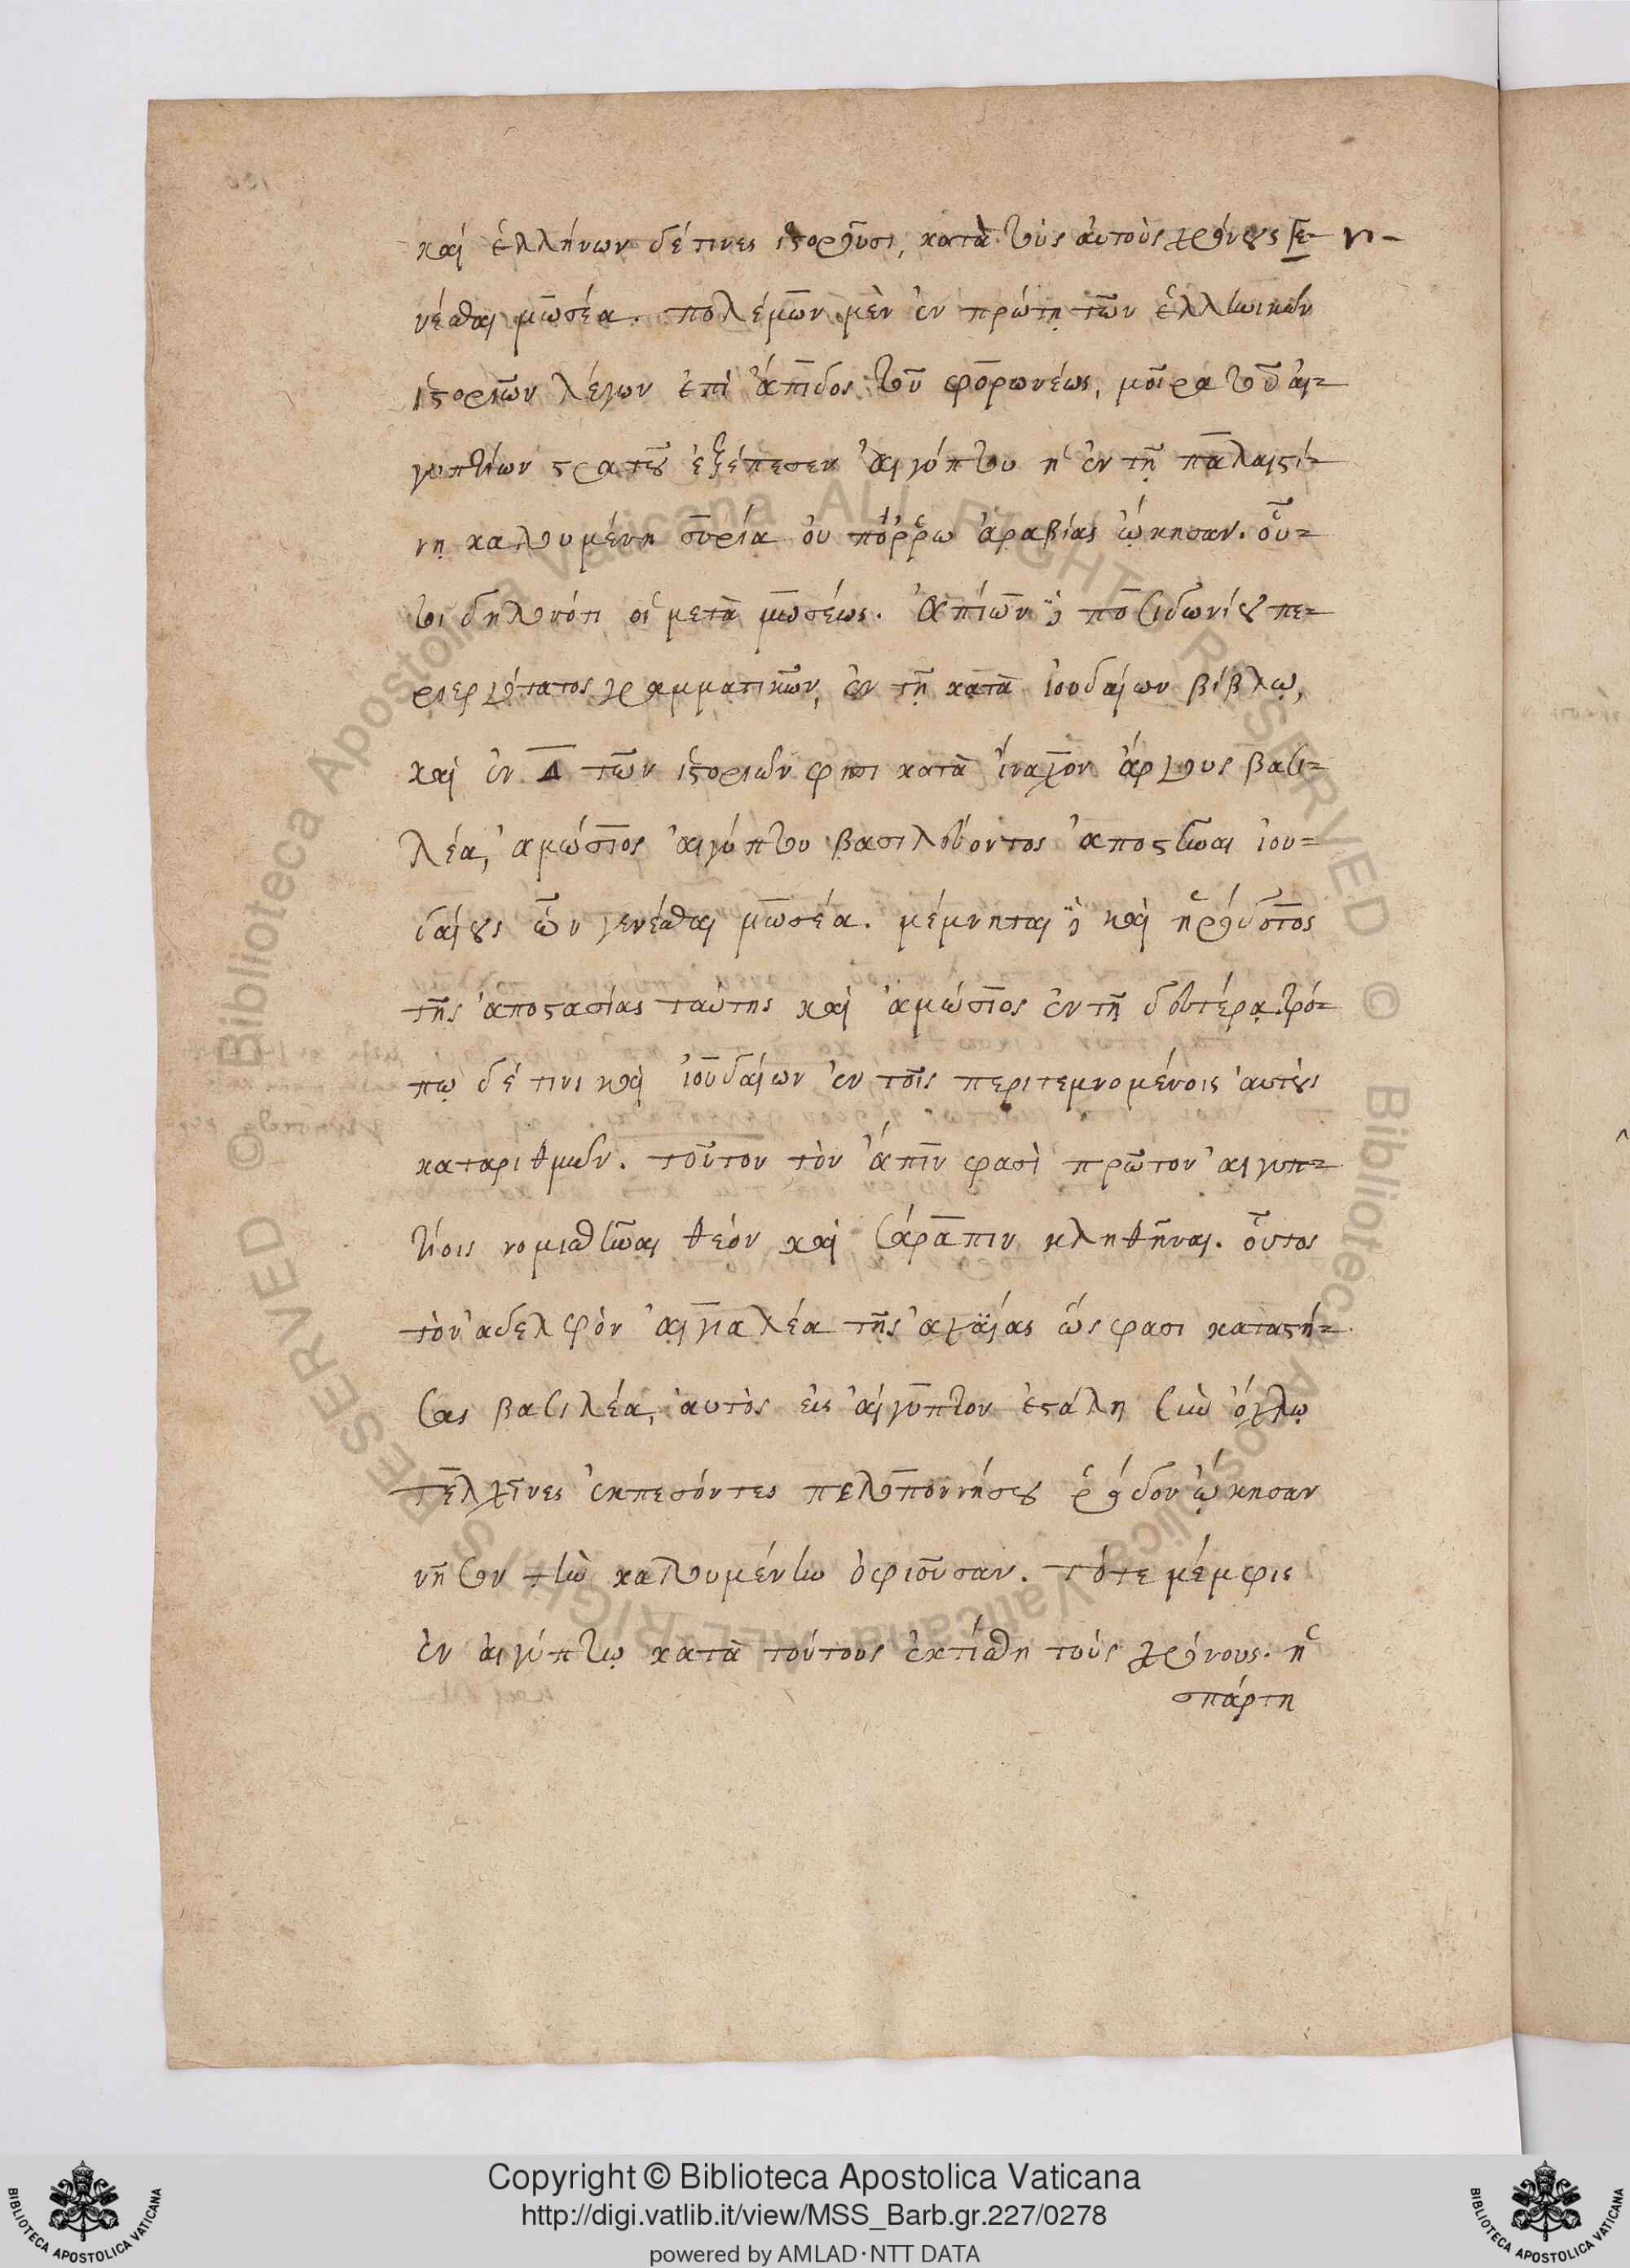 καὶ ἑλλήνων δέ τινες ἱστοροῦσι, κατὰ τοὺς αὐτοὺς χρόνους γε-
νέσθαι μωσέα. πολέμων μὲν ἐν πρώτη τῶν ἑλληνικῶν
ἱστοριῶν λέγων ἐπὶ ἄπιδος τοῦ φορωνέως, μοῖρα τοῦ αἰ-
γυπτίων στρατοῦ ἐξέπεσεν αἰγύπτου ἡ ἐν τῇ παλαιστί-
νῃ καλουμένη συρία οὐ πόρρω ἀραβίας ᾤκησαν. οὗ-
τοι δηλονότι οἱ μετὰ μωσέως. ἀπίων δὲ ποσιδωνίου πε-
ριεργότατος γραμματικῶν, ἐν τῇ κατὰ ἰουδαίων βίβλῳ,
καὶ ἐν Δ τῶν ἱστοριῶν φησι κατὰ ἴναχον ἄργους βασι-
λέα, ἀμώσιος αἰγύπτου βασιλεύοντος ἀποστῆναι ἰου-
δαίους ὧν γενέσθαι μωσέα. μέμνηται δὲ καὶ ἡρόδοτος
τῆς ἀποστασίας ταύτης καὶ ἀμώσιος ἐν τῇ δευτέρᾳ. τρό-
πῳ δέ τινι καὶ ἰουδαίων ἐν τοῖς περιτεμνομένοις αὐτοὺς
καταριθμῶν. τοῦτον τὸν ἄπιν φασὶ πρῶτον αἰγυπ-
τίοις νομισθῆναι θεὸν καὶ σάραπιν κληθῆναι. οὗτος
τὸν ἀδελφὸν αἰγιαλέα τῆς ἀχαΐας ὥς φασι καταστή-
σας βασιλέα, αὐτὸς εἰς αἴγυπτον ἐστάλη σὺν ὄχλῳ
τελχῖνες ἐκπεσόντες πελοποννήσου ῥόδον ᾤκησαν
νῆσον τὴν καλουμένην ὀφιοῦσαν. τότε μέμφις
ἐν αἰγύπτῳ κατὰ τούτους ἐκτίσθη τοὺς χρόνους. ἡ
σπάρτη
Copyright © Biblioteca Apostolica Vaticana
http://digi.vatlib.it/view/MSS_Barb.gr.227/0278
powered by AMLAD·NTT DATA
BIBLIOTECA APOSTOLICA VATICANA
BIBLIOTECA APOSTOLICA VATICANA
© Biblioteca Apostolica Vaticana ALL RIGHTS RESERVED
© Biblioteca Apostolica Vaticana ALL RIGHTS RESERVED